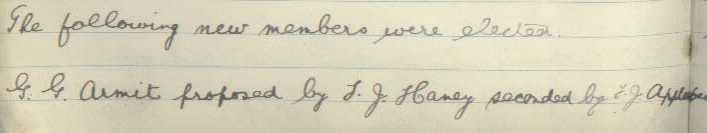 The following new members were elected.
G. G. Armit proposed by T. J. Haney seconded by T. J.